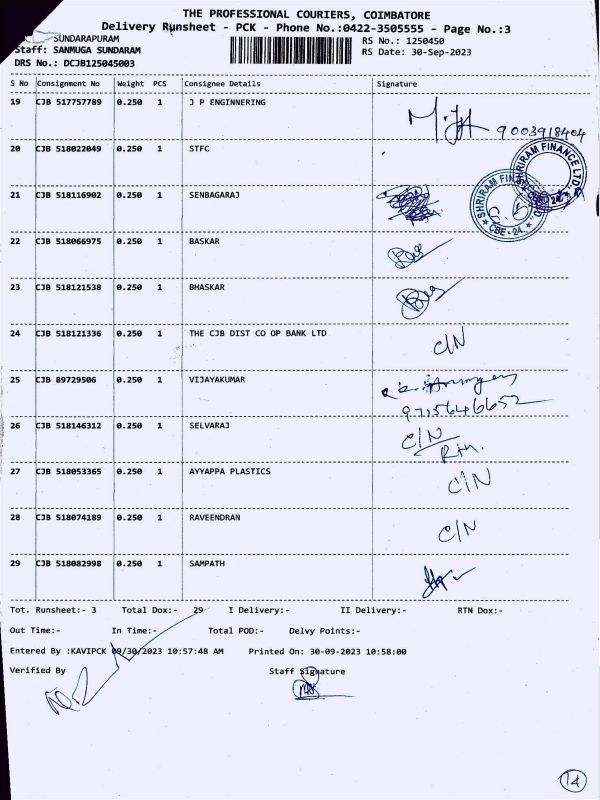 THE PROFESSIONAL COURIERS, COIMBATORE
Delivery Runsheet - PCK - Phone No.:0422-3505555 - Page No.:3
SUNDARAPURAM
RS No.: 1250450
Staff: SANMUGA SUNDARAM
RS Date: 30-Sep-2023
DRS No.: DCJB125045003
S No Consignment No Weight PCS Consignee Details Signature
19 CJB 517757789 0.250 1 J P ENGINNERING
9003918404
20 CJB 518022049 0.250 1 STFC
SHRIRAM FINANCE LTD
21 CJB 518116902 0.250 1 SENBAGARAJ
SHRIRAM FIN
CBE - 24
22 CJB 518066975 0.250 1 BASKAR
23 CJB 518121538 0.250 1 BHASKAR
24 CJB 518121336 0.250 1 THE CJB DIST CO OP BANK LTD C/N
25 CJB 89729506 0.250 1 VIJAYAKUMAR
9715646652
26 CJB 518146312 0.250 1 SELVARAJ C/N
27 CJB 518053365 0.250 1 AYYAPPA PLASTICS C/N
28 CJB 518074189 0.250 1 RAVEENDRAN C/N
29 CJB 518082998 0.250 1 SAMPATH
Tot. Runsheet:- 3 Total Dox:- 29 I Delivery:- II Delivery:- RTN Dox:-
Out Time:- In Time:- Total POD:- Delvy Points:-
Entered By :KAVIPCK 09/30/2023 10:57:48 AM Printed On: 30-09-2023 10:58:00
Verified By Staff Signature
14